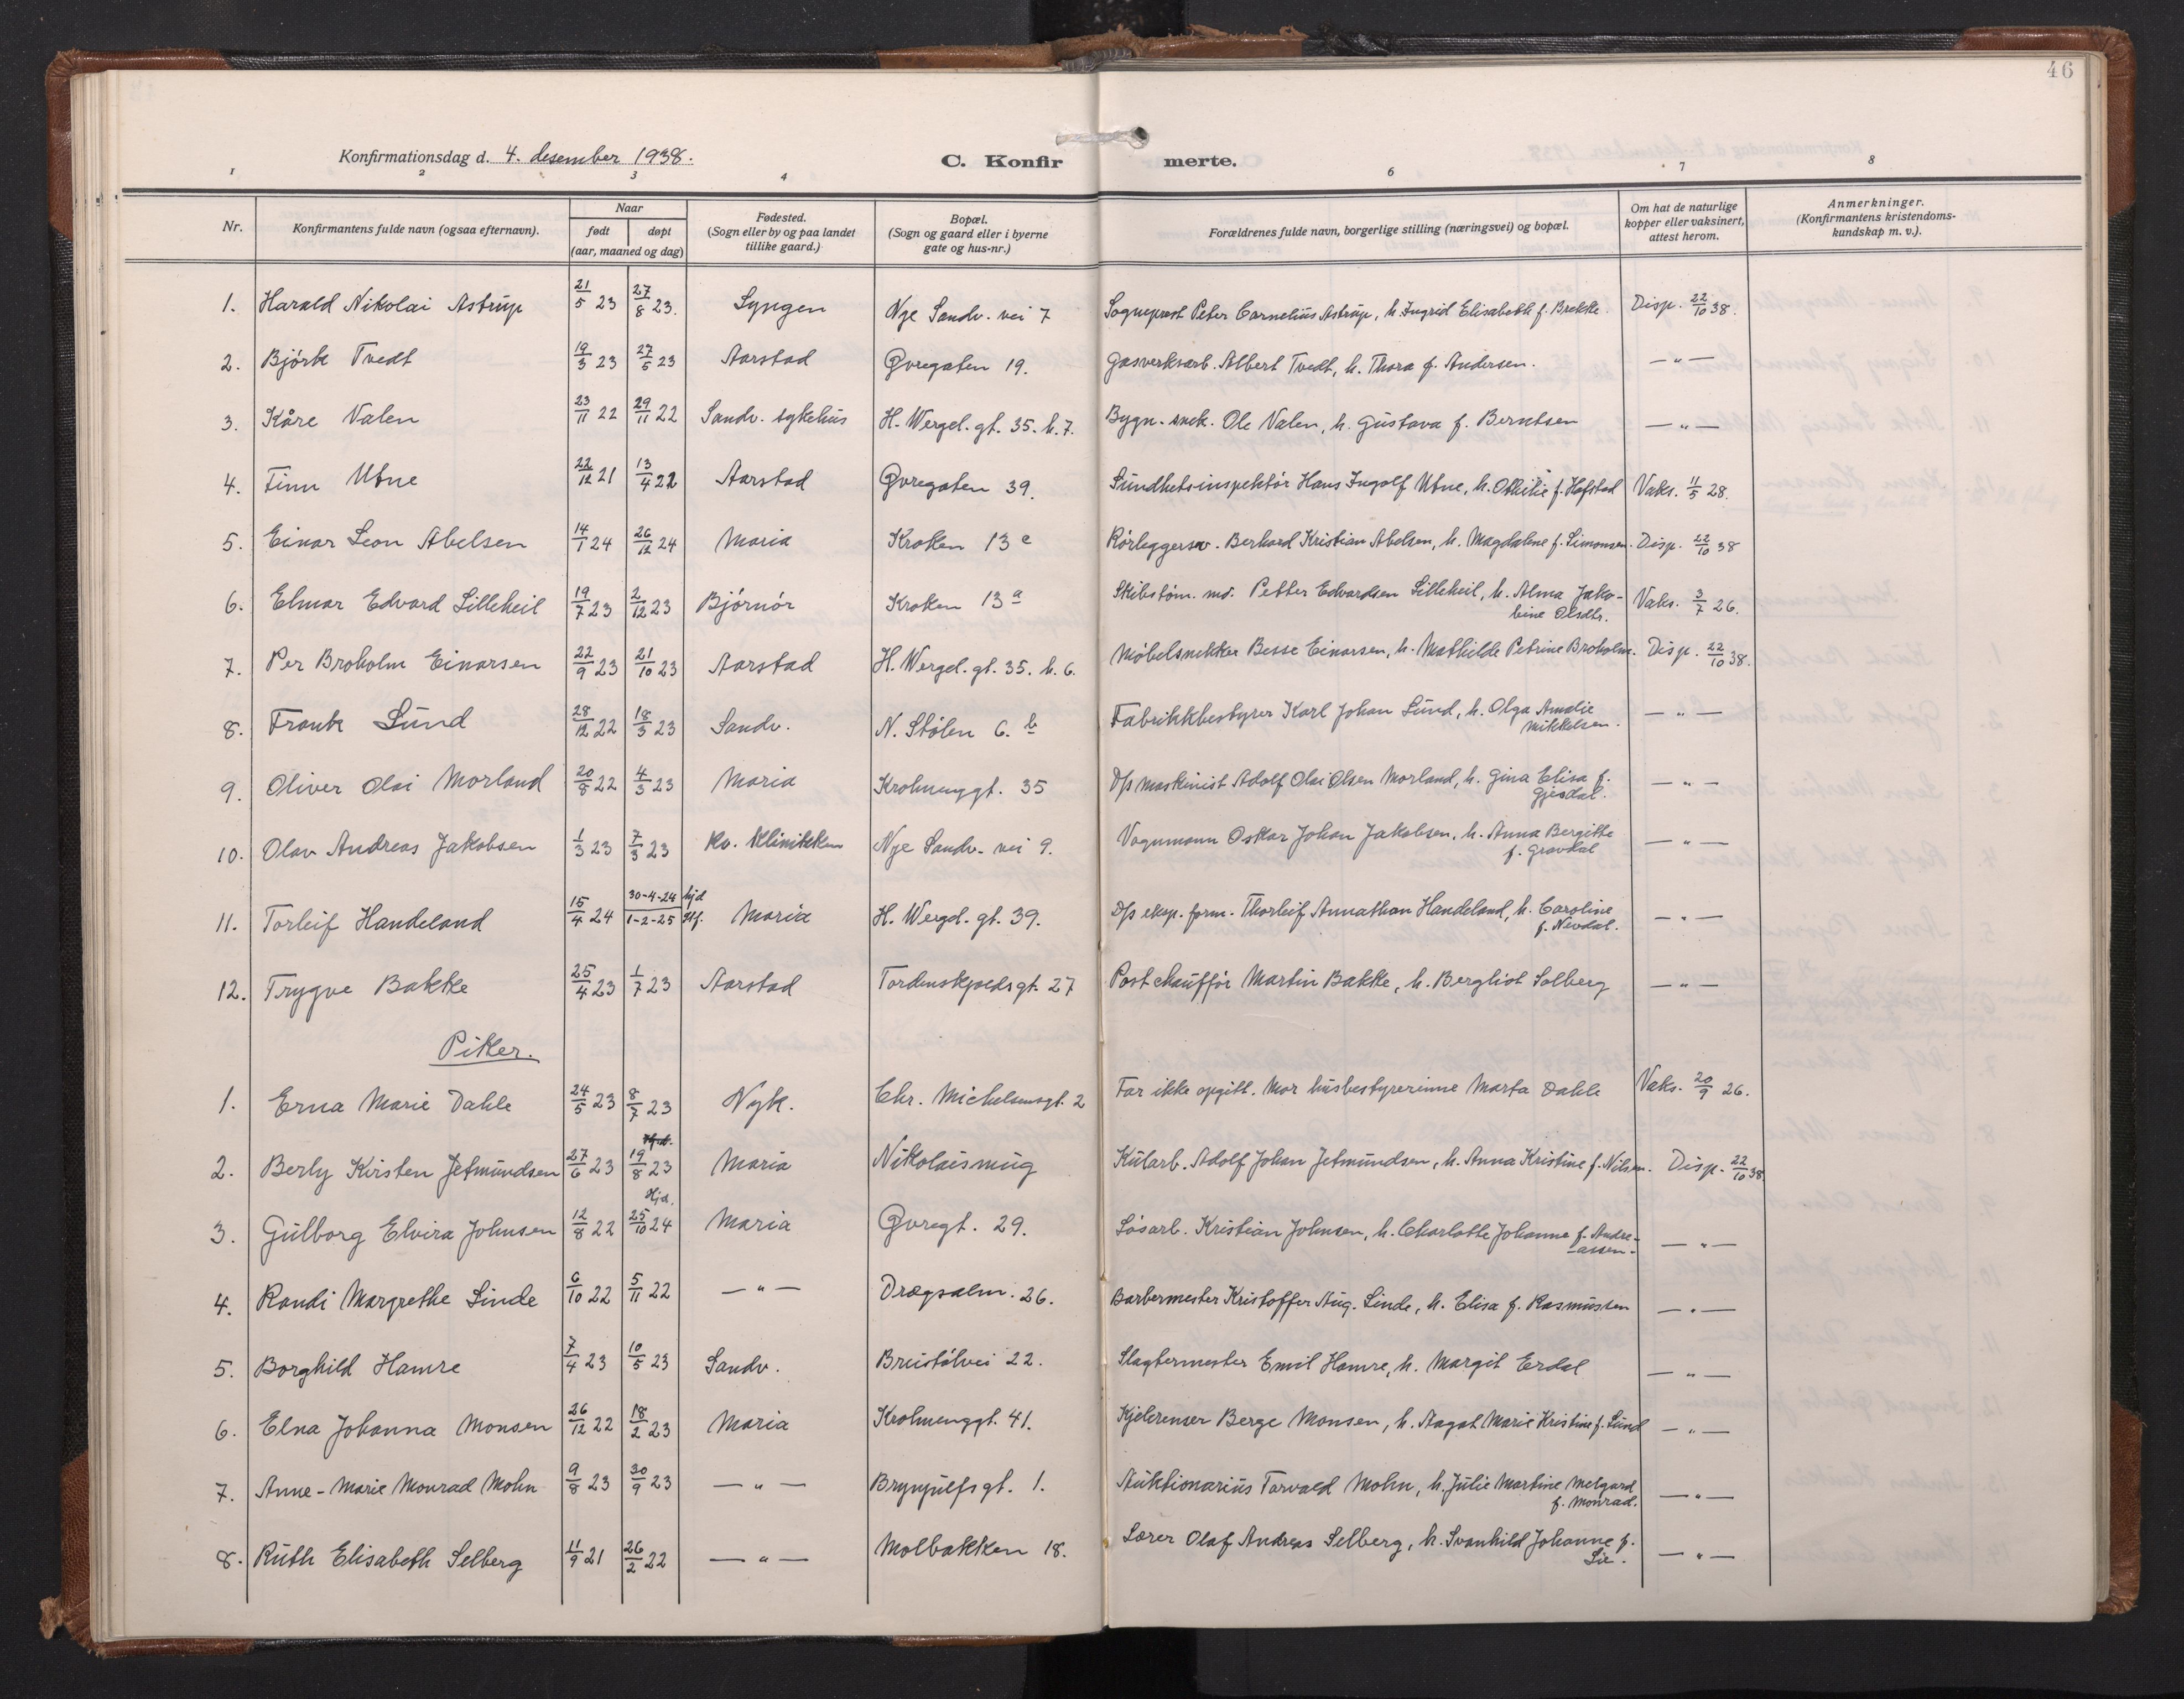 46
Konfirmationsdag d. 4. desember 1938.
C. Konfirmerte.
1 2 3 4 6 7 8
Nr. Konfirmantens fulde navn (ogsaa efternavn). Naar født døpt (aar, maaned og dag) Fødested. (Sogn eller by og paa landet tillike gaard.) Bopæl. (Sogn og gaard eller i byerne gate og hus-nr.) Forældrenes fulde navn, borgerlige stilling (næringsvei) og bopæl. Om hat de naturlige kopper eller vaksinert, attest herom. Anmerkninger. (Konfirmantens kristendomskundskap m. v.).
1. Harald Nikolai Astrup 21/5 23 27/8 23. Lyngen Nye Sandv. vei 7 Sogneprest Peter Cornelius Astrup, h. Ingrid Elisabeth f. Brekke. Disp. 22/10 38.
2. Bjørk Tvedt 19/3 23 27/5 23 Aarstad Øvregaten 19. Gasverksarb. Albert Tvedt, h. Thora f. Andersen. — " —
3. Kåre Valen 23/11 22 29/11 22 Sandv. sykehus H. Wergel. gt. 35. h. 7. Bygn. snek. Ole Valen, h. Gustava f. Berntsen — " —
4. Finn Utne 22/12 21 13/4 22 Aarstad Øvregaten 39. Sundhetsinspektör Hans Ingolf Utne, h. Othilie f. Hafstad Vaks. 11/5 28.
5. Einar Leon Abelsen 14/1 24 26/12 24 Maria Kroken 13 Rörleggersv. Berhard Kristian Abelsen, h. Magdalene f. Simonsen. Disp. 22/10 38
6. Elmar Edvard Lilleheil 19/7 23 2/12 23 Bjórnór Kroken 13 a Skibstöm. md. Petter Edvardsen Lilleheil, h. Alma Jakobine Olsdtr. Vaks. 3/7 26.
7. Per Broholm Einarsen 22/9 23 21/10 23 Aarstad H. Wergel. gt. 35. h. 6. Möbelsnekker Besse Einarsen, h. Mathilde Petrine Broholm. Disp. 22/10 38.
8. Frank Lund 28/12 22 18/3 23 Sandv. N. Stölen 6. b Fabrikkbestyrer Karl Johan Lund, h. Olga Amalie Mikkelsen. — " —
9. Oliver Olai Morland 20/8 22 4/3 23 Maria Krohnenggt. 35 D/s maskinist Adolf Olai Olsen Morland, h. Gina Elisa f. Gjesdal. — " —
10. Olav Andreas Jakobsen 1/3 23 7/3 23 Kv. Klinikken Nye Sandv. vei 9. Vognmann Oskar Johan Jakobsen, h. Anna Bergitte f. Gravdal — " —
11. Torleif Handeland 15/4 24 30-4-24 hjd 1-2-25 Stf. Maria H. Wergel. gt. 39. D/s eksp. form. Thorleif Annathon Handeland, h. Caroline f. Nevdal. — " —
12. Trygve Bakke 25/4 23 1/7 23 Aarstad Tordenskjoldsgt. 27 Post chauffór Martin Bakke, h. Bergliot Solberg — " —
Piker.
1. Erna Marie Dahle 24/5 23 8/7 23 Nyk. Chr. Michelsensgt. 2 Far ikke opgitt. Mor husbestyrerinne Marta Dahle Vaks. 20/9 26.
2. Berly Kirsten Jetmundsen 27/6 23 19/8 23 Maria Nikolaismug Kularb. Adolf Johan Jetmundsen, h. Anna Kristine f. Nilsen. Disp. 22/10 38
3. Gulborg Elvira Johnsen 12/8 22 Hjd. 25/10 24 Maria Øvregt. 29. Lósarb. Kristian Johnsen, h. Charlotte Johanne f. Andreassen. — " —
4. Randi Margrethe Linde 6/10 22 5/11 22 — " — Drægsalm. 26. Barbermester Kristoffer Aug. Linde, h. Elisa f. Rasmussen — " —
5. Borghild Hamre 7/4 23 10/5 23 Sandv. Breistölvei 22. Slagtermester Emil Hamre, h. Margit Erdal — " —
6. Elna Johanna Monsen 26/12 22 18/2 23 Maria Krohnenggt. 41. Kjelerenser Berge Monsen, h. Aagot Marie Kristine f. Lund — " —
7. Anne-Marie Monrad Mohn 9/8 23 30/9 23 — " — Brynjulfsgt. 1. Auktionarius Torvald Mohn, h. Julie Martine Melgard f. Monrad. — " —
8. Ruth Elisabeth Selberg 11/9 21 26/2 22 — " — Molbakken 18. Lærer Olaf Andreas Selberg, h. Svanhild Johanne f. Lie. — " —